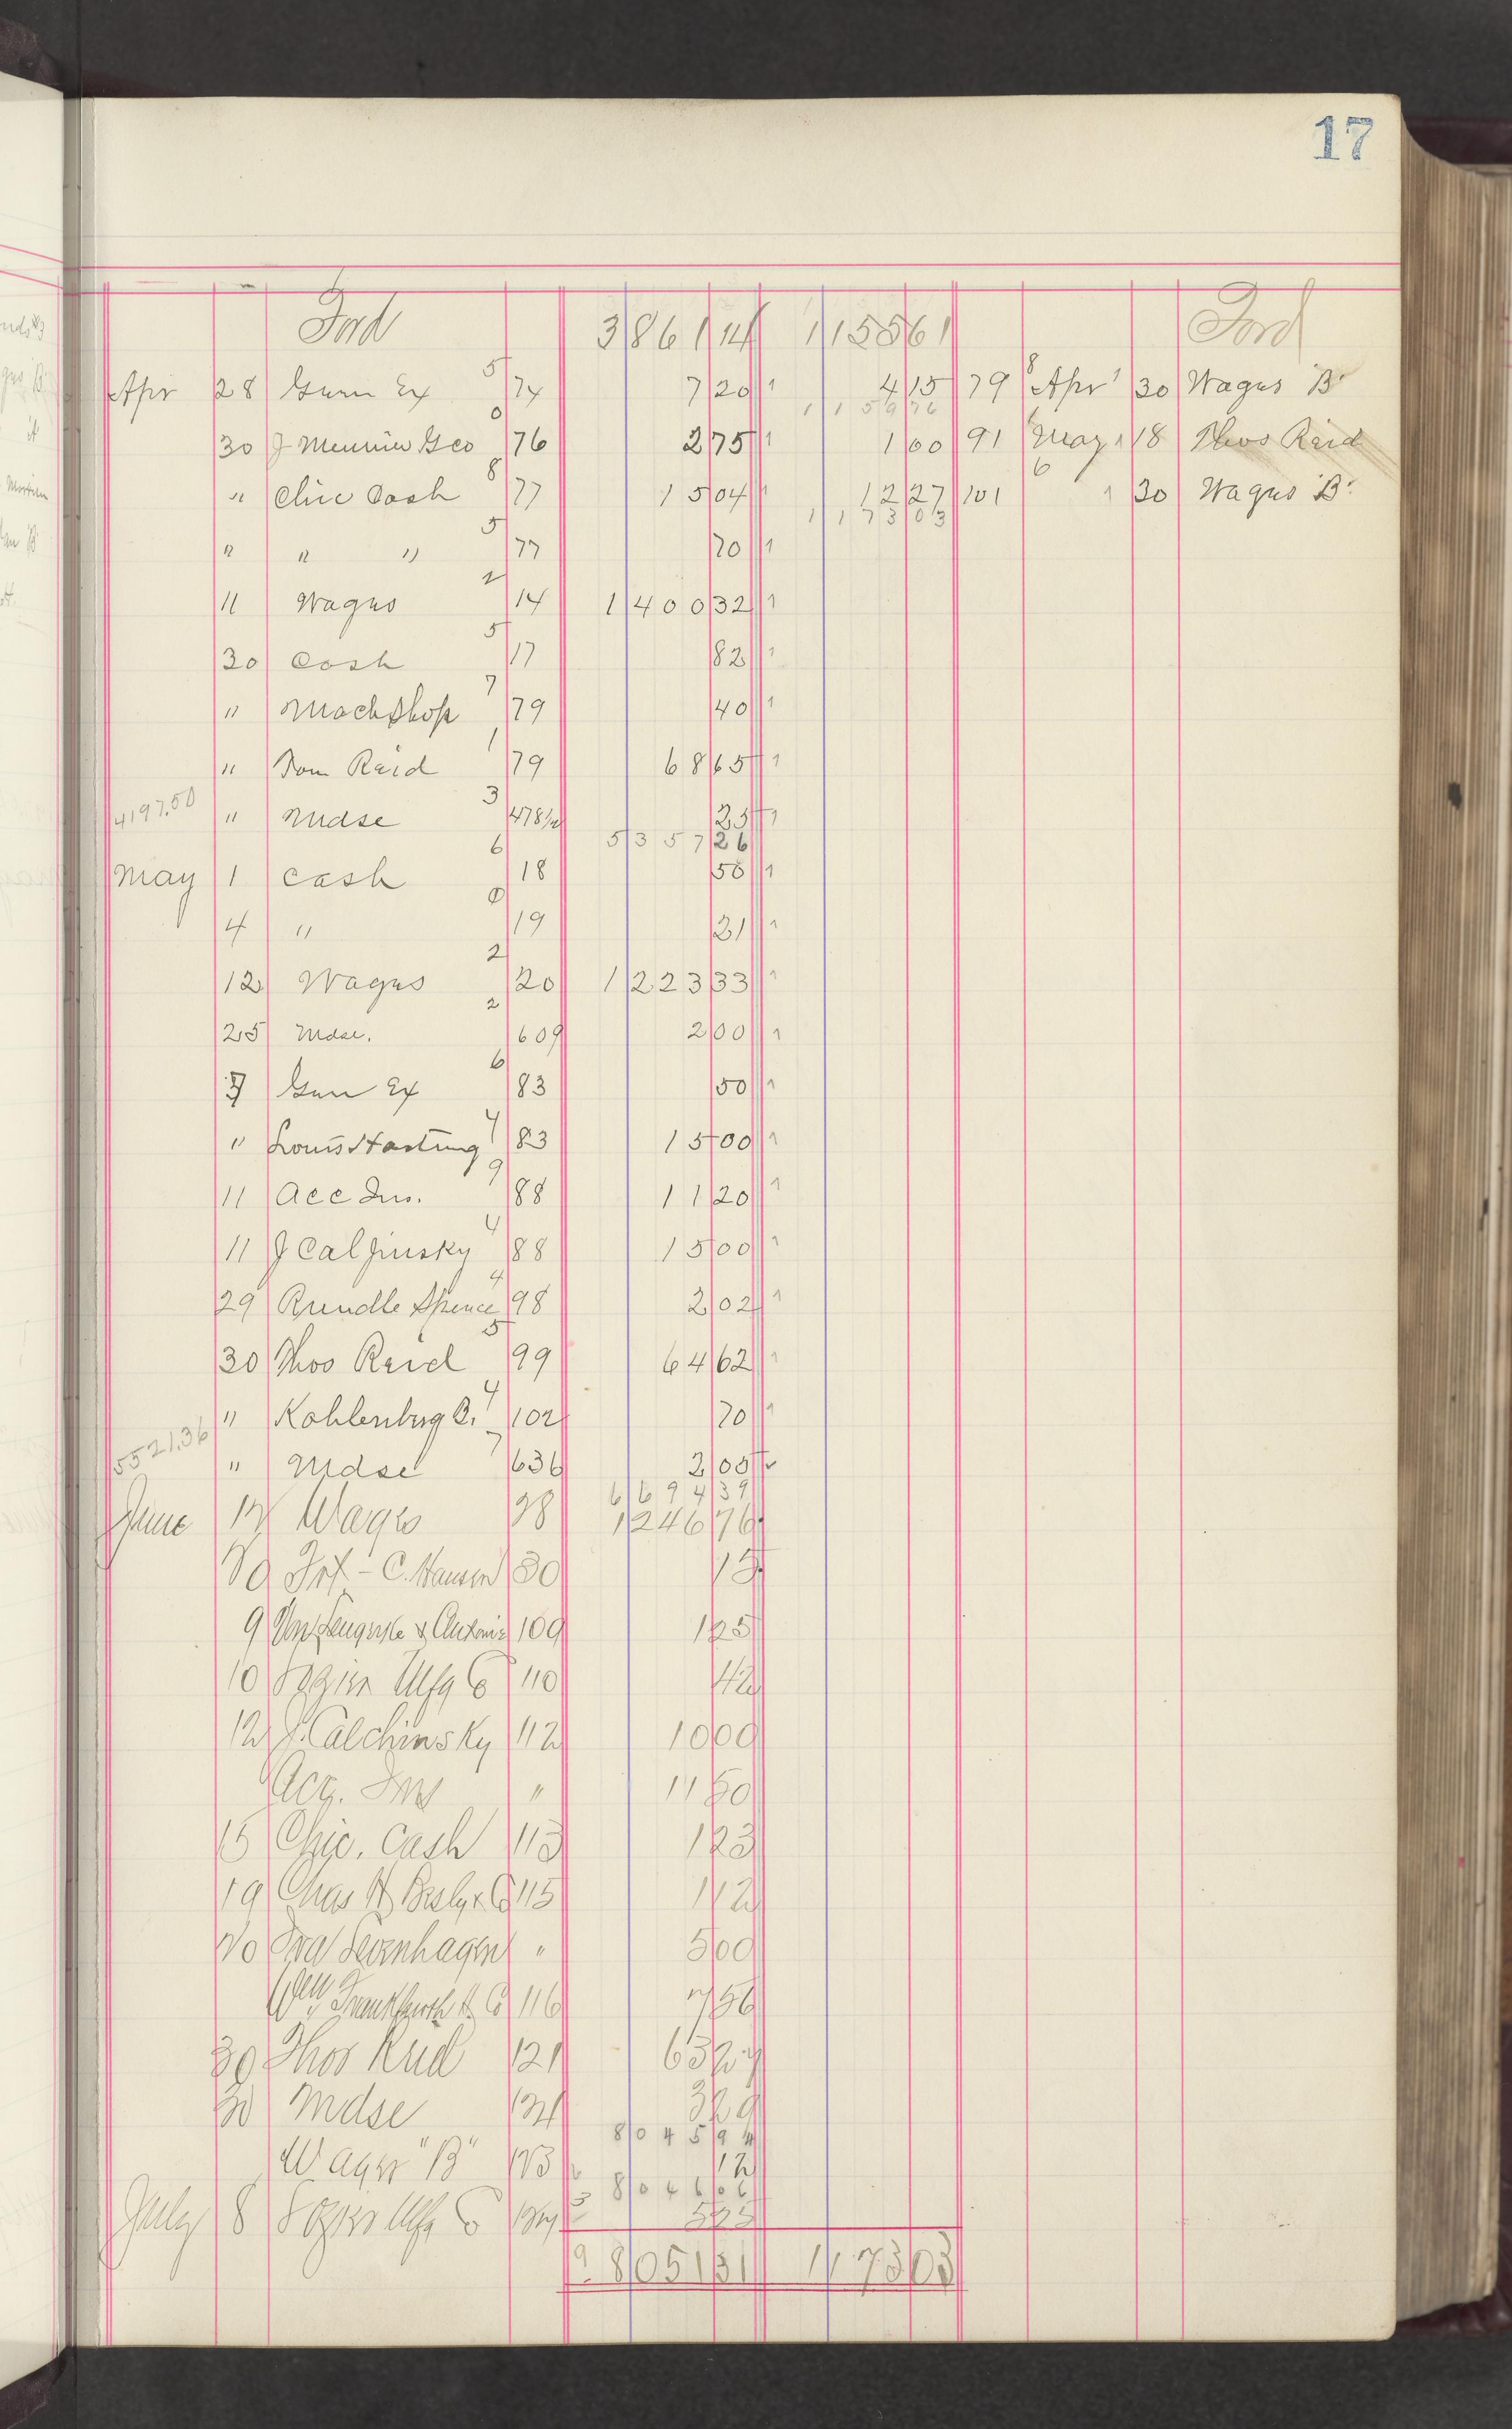 17
Ford 3861 14 1155 61 Ford
Apr 28 Genn Ex 5 74 7 20 4 15 79 8 Apr 30 Wages B
1159 76
30 J Meunier Geo 0 76 2 75 1 00 91 May 18 Thos Reid
" Chic Cash 8 77 15 04 12 27 101 6 30 Wages B
1173 03
" " " 5 77 70
11 Wages 2 14 1400 32
30 Cash 5 17 82
" Mach Shop 7 79 40
" Tom Reid 1 79 68 65
4197.50 " Mdse 3 478½ 25
5357 26
May 1 Cash 6 18 50
4 " 0 19 21
12 Wages 2 20 1223 33
25 Mdse. 2 609 2 00
7 Gen Ex 6 83 50
" Louis Hartung 4 83 15 00
11 Acc Ins. 9 88 11 20
11 J Calginsky 4 88 15 00
29 Rundle Spence 4 98 2 02
30 Thos Reid 5 99 64 62
" Kohlenberg B. 4 102 70
5521.36 " Mdse 7 636 2 00
6694 39
June 12 Wages 28 1246 76
20 Frt - C. Hansen 30 15
9 & Antoine 109 1 25
10 Mfg Co 110 42
12 J. Calchinsky 112 10 00
Acc. Ins " 11 50
15 Chic. Cash 113 1 23
19 Chas H Besly & Co 115 1 12
20 Levenhagen " 5 00
Wm Frankfurth H. Co 116 7 56
30 Thos Reid 121 65 27
30 Mdse 3 29
8045 94
Wages "B" 123 12
8046 06
July 8 Mfg Co 5 25
8051 31 1173 03